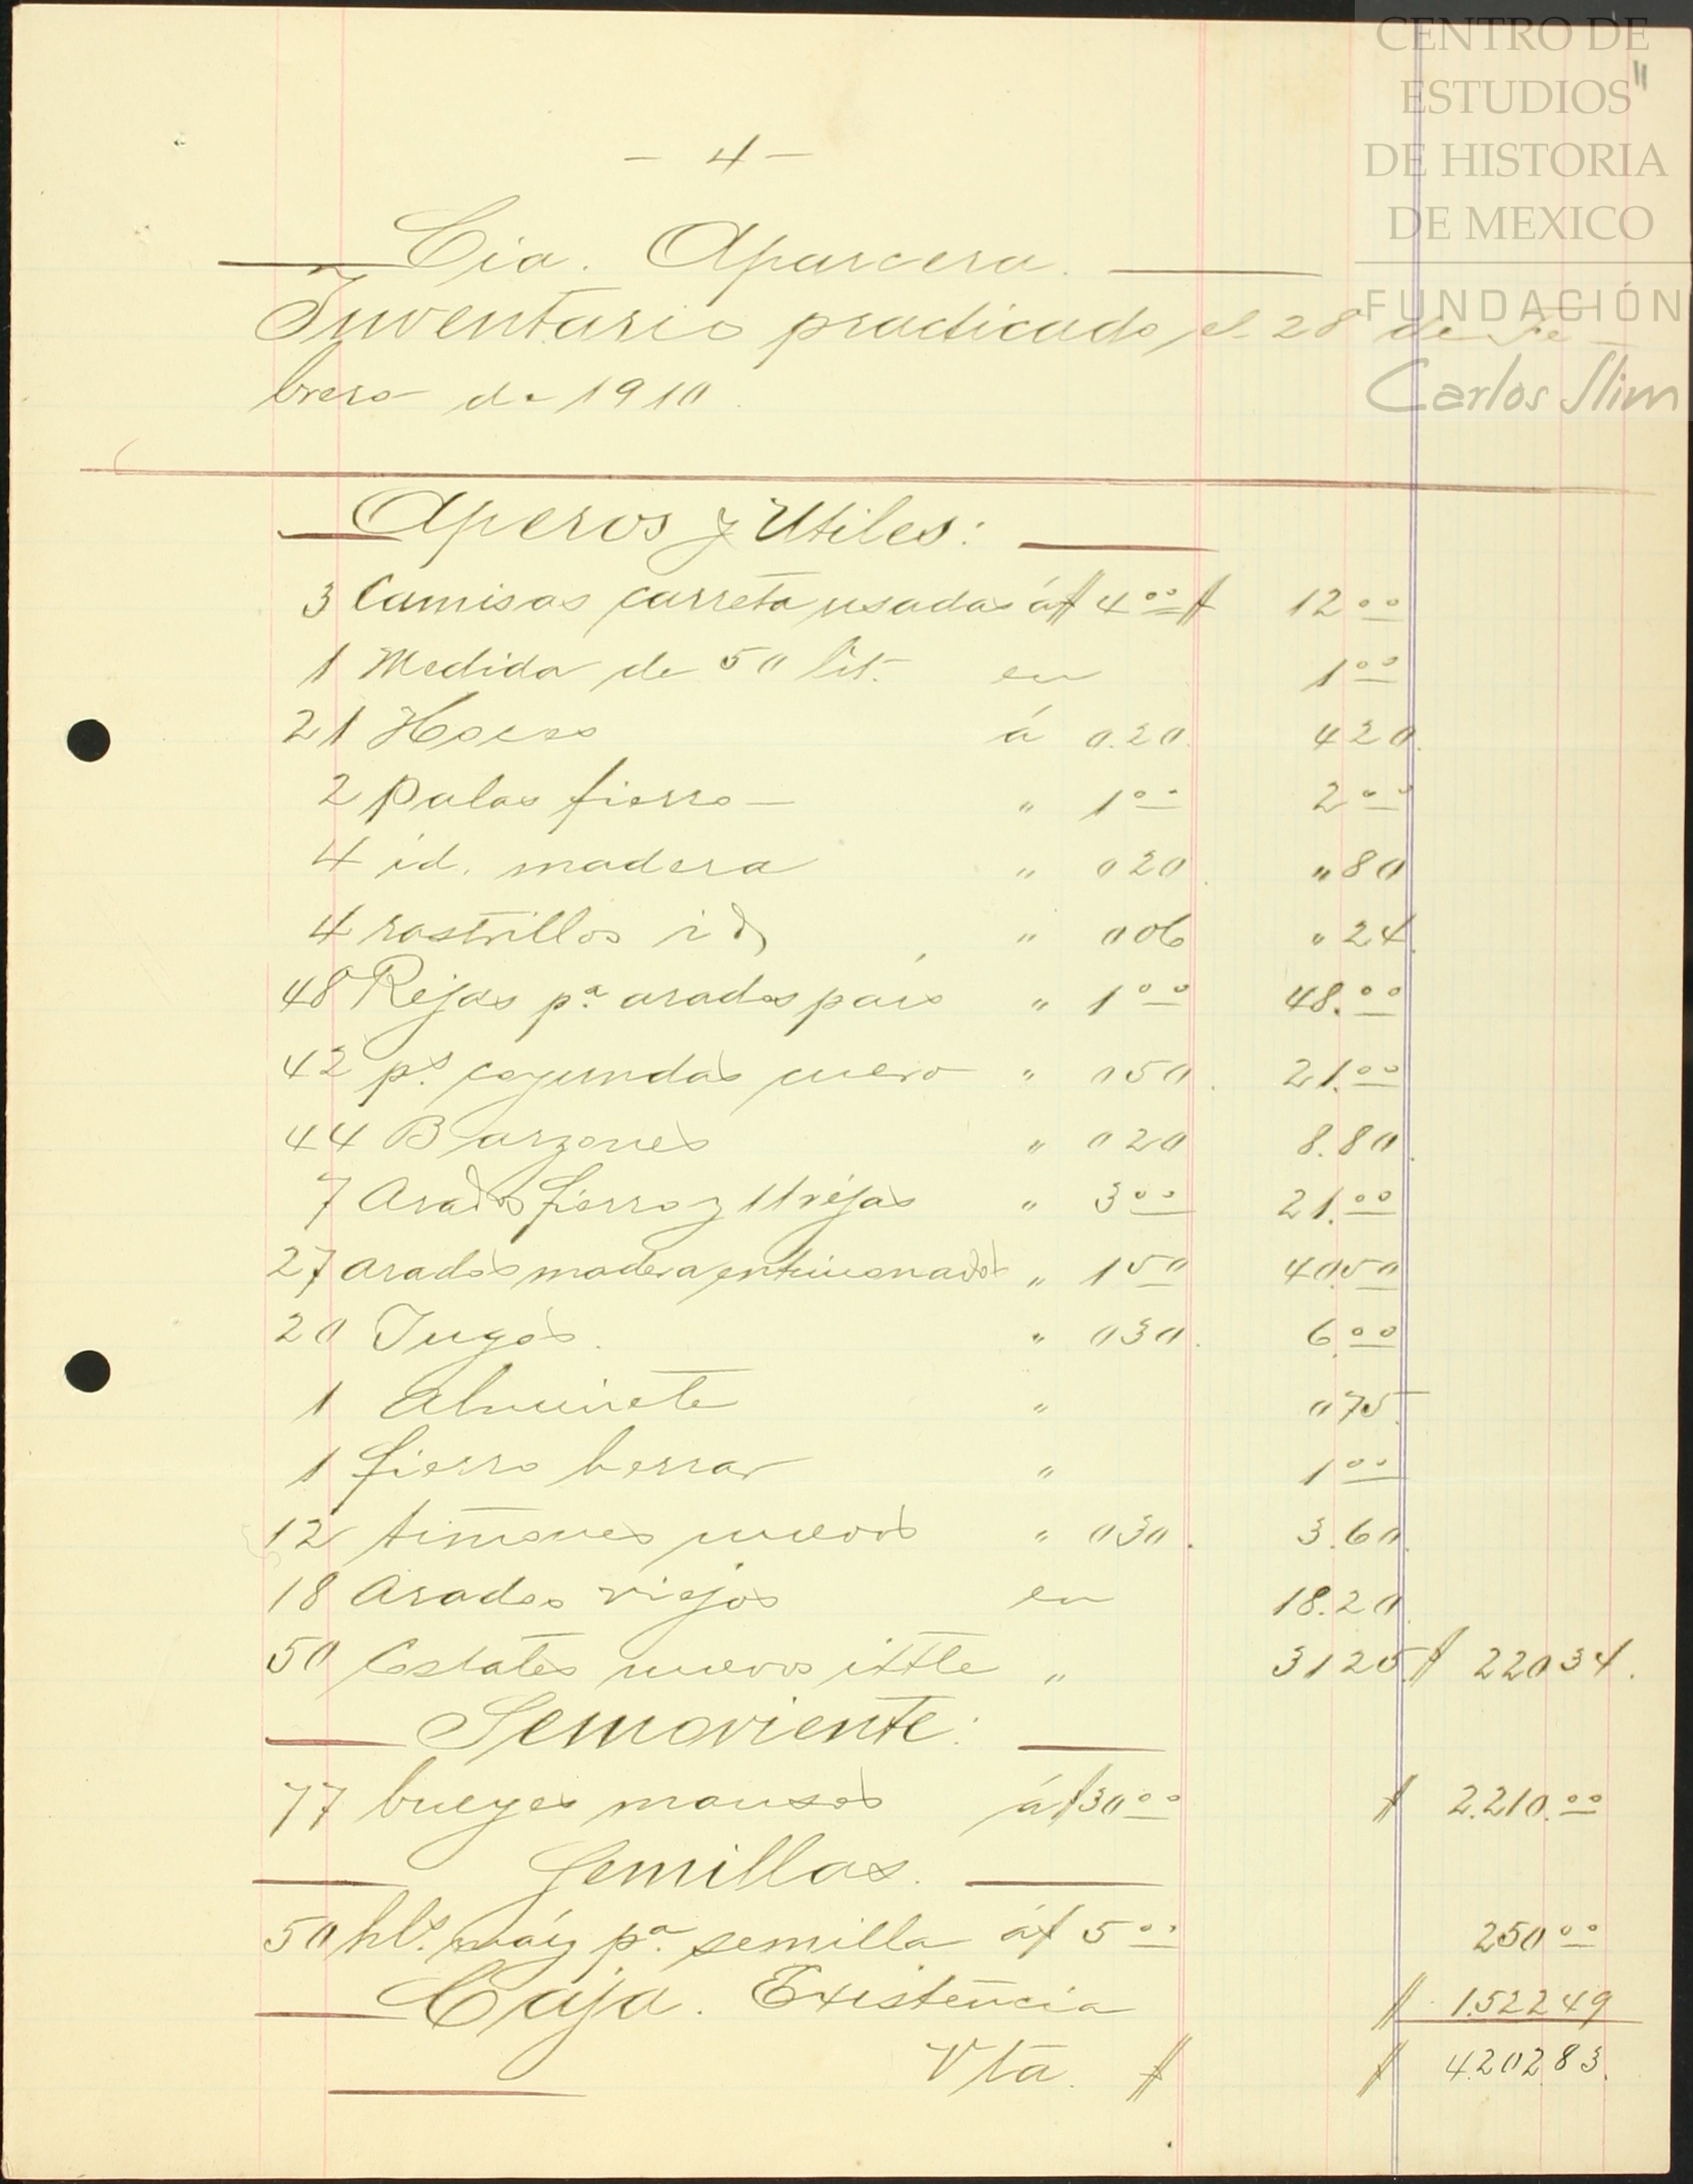 CENTRO DE
ESTUDIOS
DE HISTORIA
DE MEXICO
FUNDACIÓN
Carlos Slim
"
- 4 -
Cia. Aparcera.
Inventario practicado el 28 de Fe-
brero de 1910.
Aperos y Utiles:
3 Camisas carreta usadas á $ 4.00 $ 12.00
1 Medida de 50 lit. en 1.00
21 Hoces á 0.20. 4 20.
2 Palas fierro - " 1.00 2.00
4 id. madera " 0 20. " 80
4 rastrillos id, " 0 06 " 24.
48 Rejas pa. arados pais " 1.00 48.00
42 ps. coyundas cuero " 0 50. 21.00
44 Barzones " 0 20 8.80.
7 Arados fierro y 11 rejas " 3.00 21.00
27 arados madera " 1 50 40.50
20 Jugos. " 0 30. 6.00
1 " 0 75.
1 fierro herrar " 1.00
12 timones nuevos " 0 30. 3.60.
18 Arados viejos en 18.20.
50 Costales nuevos ixtle " 31 25. $ 220 34.
Semoviente:
77 bueyes mansos á $ 30.00 $ 2.210.00
Semillas.
50 hls. maiz pa. semilla á $ 5.00 250.00
Caja. Existencia $ 1.522 49
Vta. $ $ 4.202.83.